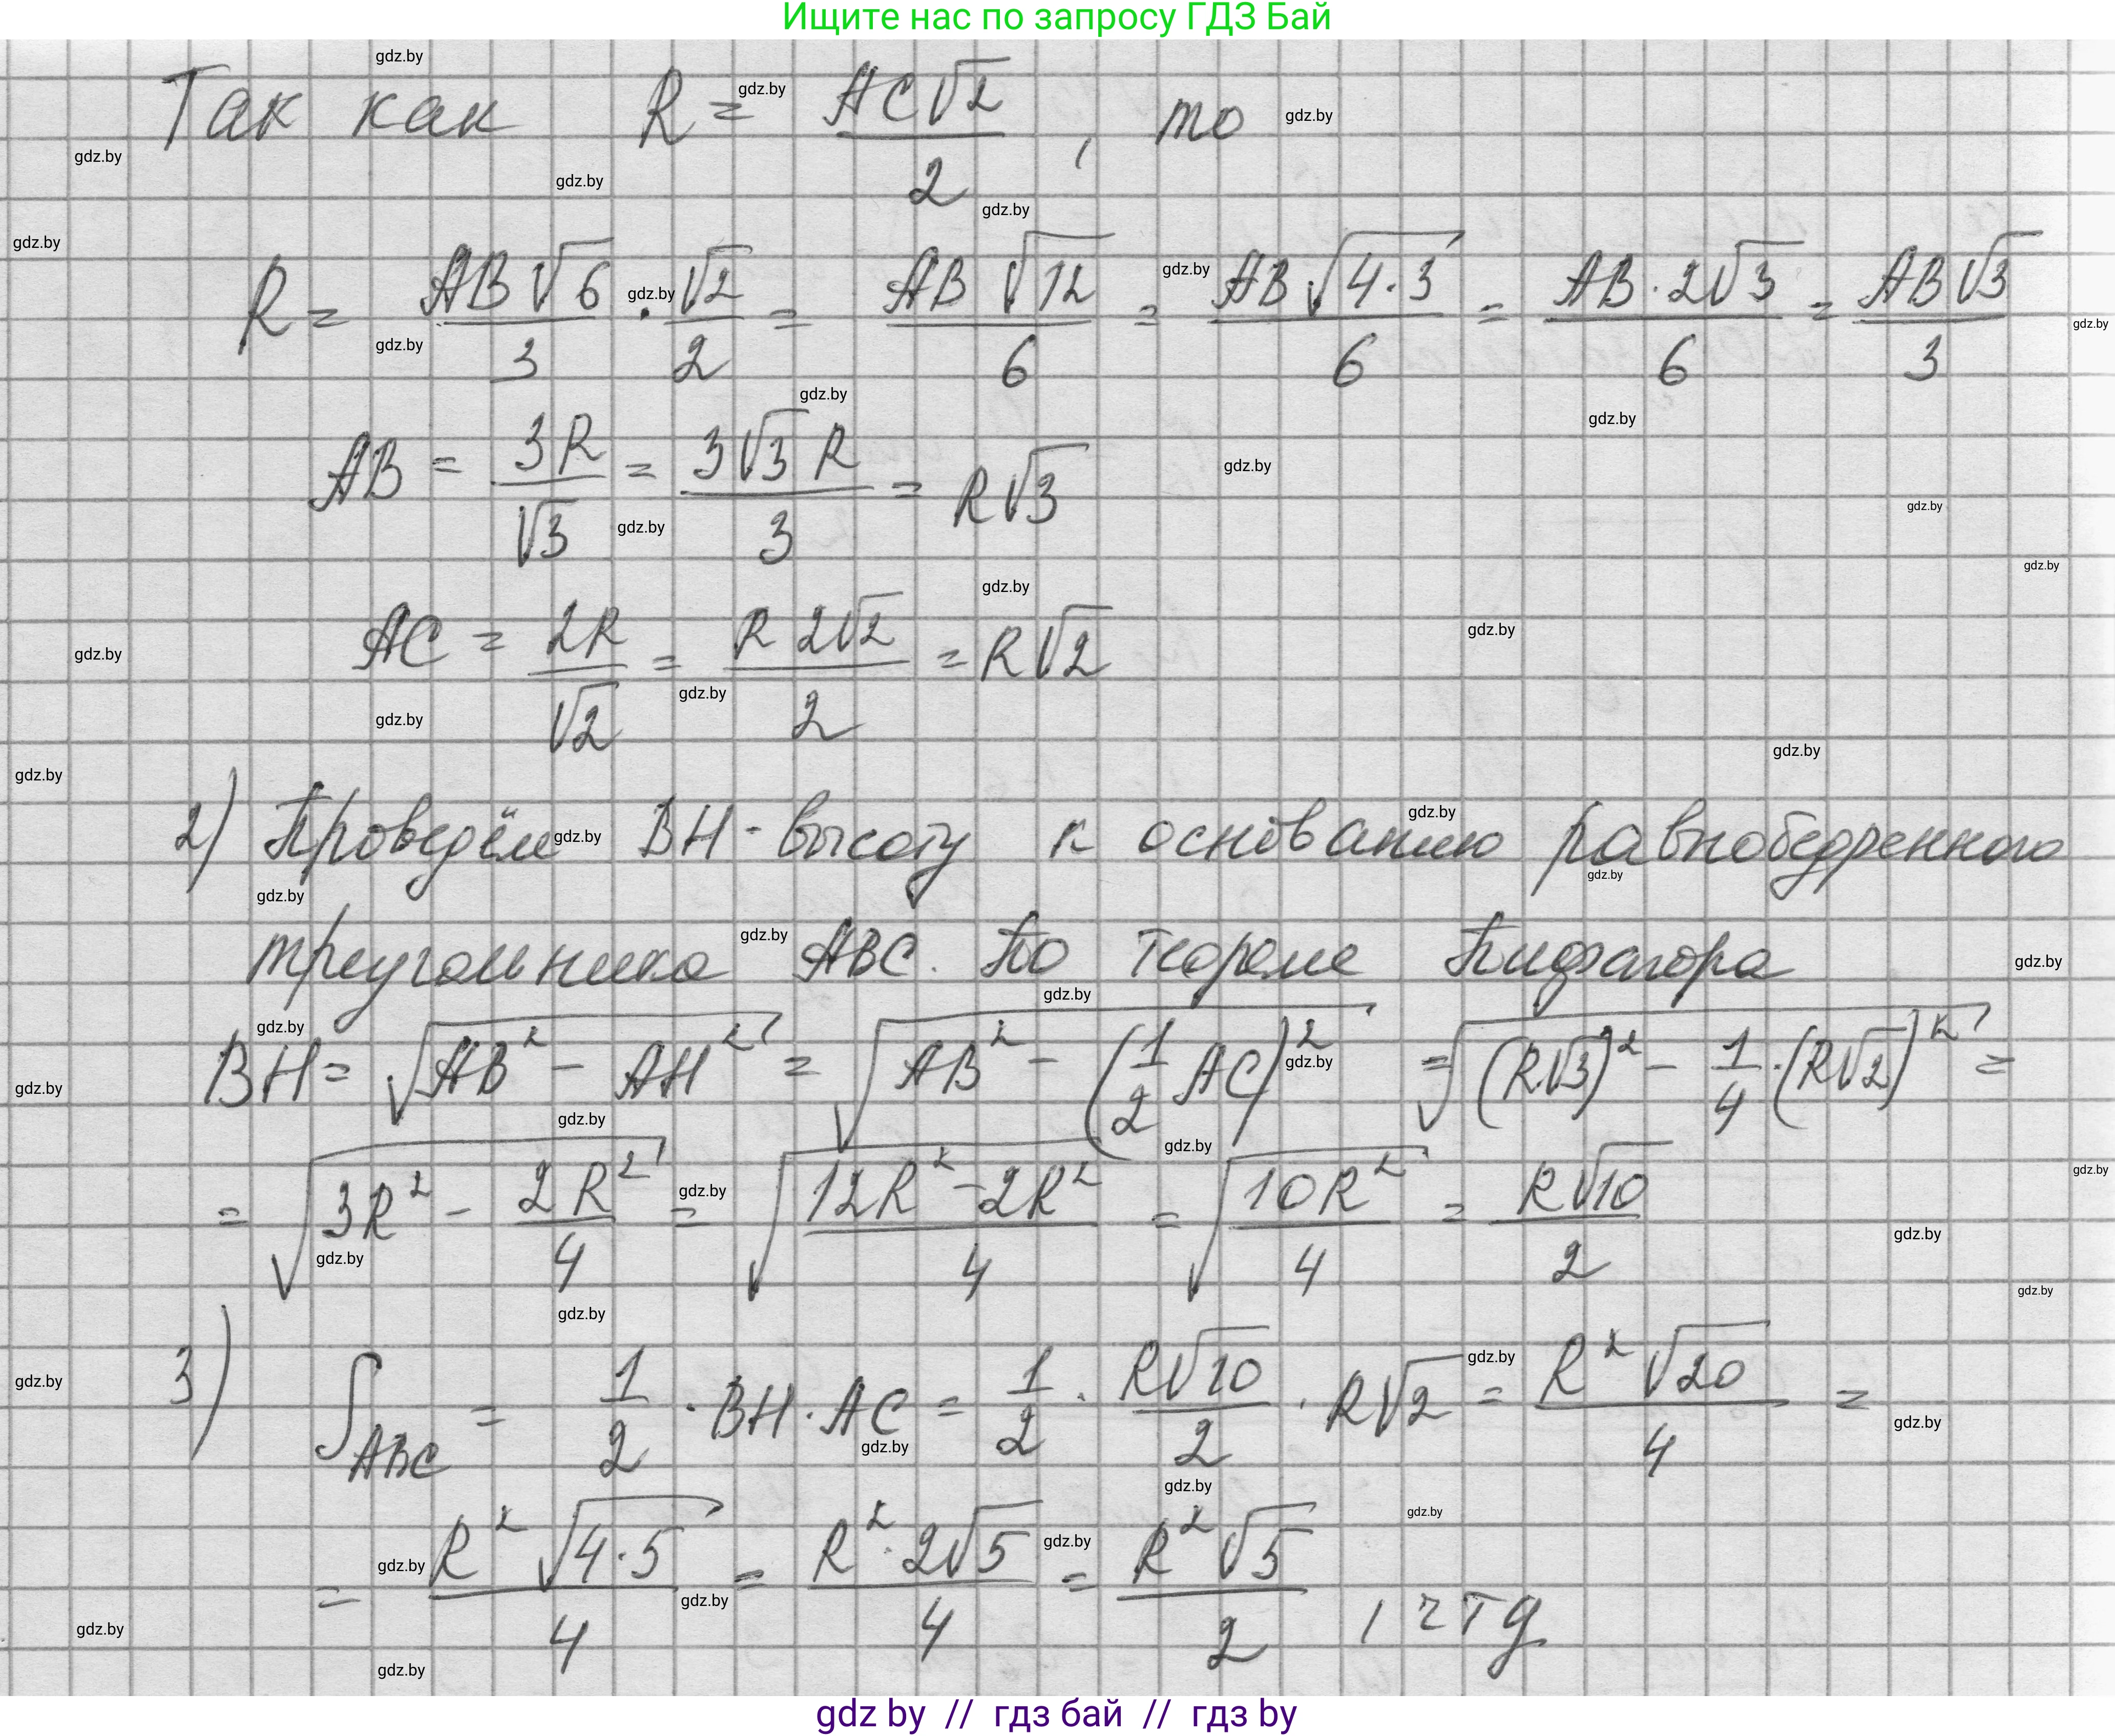 Ищите нас по запросу ГДЗ Бай
Так как R = AC√2/2, то
R = AB√6/3 · √2/2 = AB√12/6 = AB√(4·3)/6 = AB·2√3/6 = AB√3/3
AB = 3R/√3 = 3√3 R/3 = R√3
AC = 2R/√2 = R 2√2/2 = R√2
2) Проведём BH - высоту к основанию равнобедренного
треугольника ABC. По теореме Пифагора
BH = √(AB² - AH²) = √(AB² - (1/2 AC)²) = √((R√3)² - 1/4·(R√2)²) =
= √(3R² - 2R²/4) = √((12R² - 2R²)/4) = √(10R²/4) = R√10/2
3) S ABC = 1/2 · BH · AC = 1/2 · R√10/2 · R√2 = R²√20/4 =
= R²√(4·5)/4 = R²·2√5/4 = R²√5/2, чтд
gdz by // гдз бай // гдз by